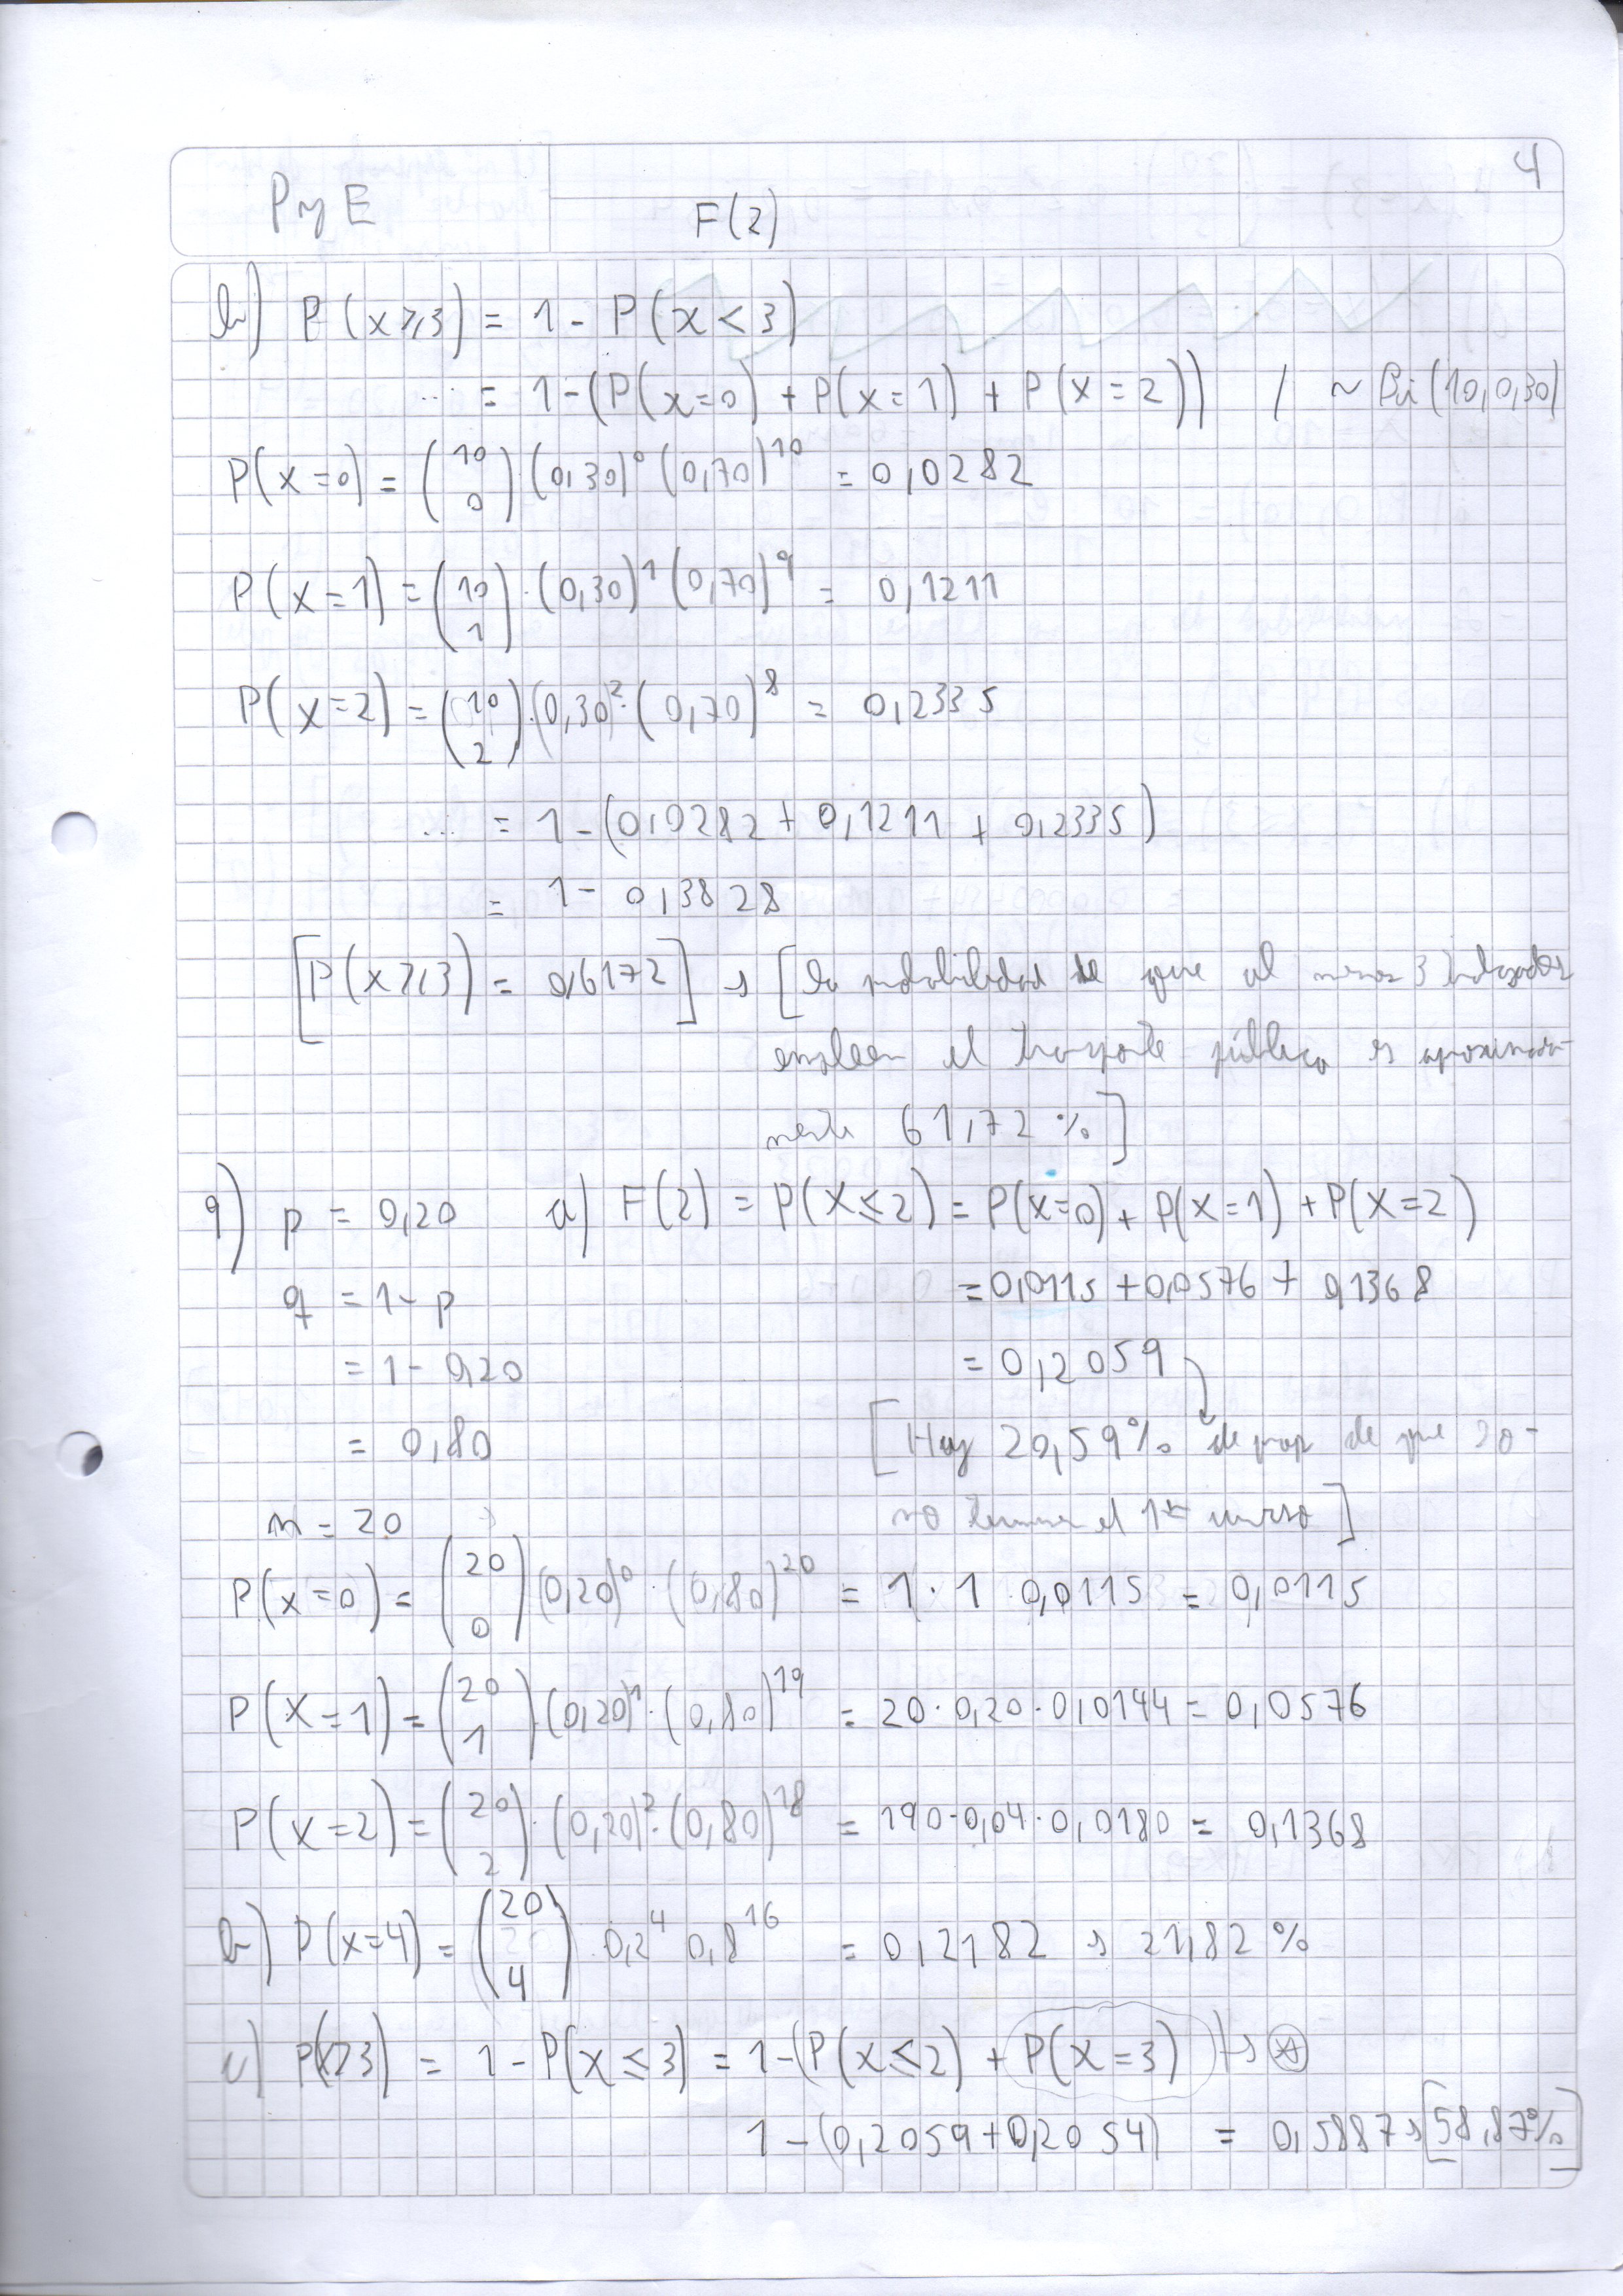 P y E
F(2)
4
b) P(x ≥ 3) = 1 - P(x < 3)
... = 1 - (P(x=0) + P(x=1) + P(x=2)) / ~ Bi(10, 0,30)
P(x=0) = (10 0) (0,30)^0 (0,70)^10 = 0,0282
P(x=1) = (10 1) · (0,30)^1 (0,70)^9 = 0,1211
P(x=2) = (10 2) · (0,30)^2 · (0,70)^8 = 0,2335
... = 1 - (0,0282 + 0,1211 + 0,2335)
= 1 - 0,3828
[P(x ≥ 3) = 0,6172] → [la probabilidad de que al menos 3 trabajadores
empleen el trasporte público es aproximada-
mente 61,72 %]
9) p = 0,20 a) F(2) = P(X ≤ 2) = P(x=0) + P(x=1) + P(X=2)
q = 1 - p = 0,0115 + 0,0576 + 0,1368
= 1 - 0,20 = 0,2059
= 0,80 [Hay 20,59% de prop de que 20-
n = 20 no terminen el 1er curso]
P(x=0) = (20 0) (0,20)^0 · (0,80)^20 = 1 · 1 0,0115 = 0,0115
P(X=1) = (20 1) · (0,20)^1 · (0,80)^19 = 20 · 0,20 · 0,0144 = 0,0576
P(x=2) = (20 2) · (0,20)^2 · (0,80)^18 = 190 · 0,04 · 0,0180 = 0,1368
b) P(x=4) = (20 4) 0,2^4 0,8^16 = 0,2182 → 21,82 %
c) P(x>3) = 1 - P(x ≤ 3) = 1 - (P(x ≤ 2) + P(x=3)) → ⊛
1 - (0,2059 + 0,2054) = 0,5887 → [58,87%]